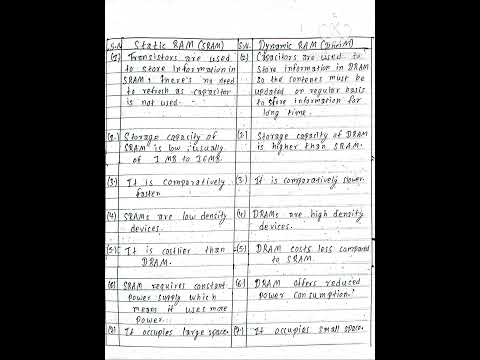 S.N Static RAM (SRAM)
(1) Transistors are used
to store information in
SRAM, there's no need
to refresh as capacitor
is not used.
(2.) Storage capacity of
SRAM is low usually
of 1 MB to 16MB.
(3.) It is comparatively
faster.
(4) SRAMs are low density
devices.
(5) It is costlier than
DRAM.
(6) SRAM requires constant
power supply which
means it uses more
power.
(7) It occupies large space.
S.N. Dynamic RAM (DRAM)
Capacitors are used to
store information in DRAM
so the contents must be
updated on regular basis
to store information for
long time.
(2.) Storage capacity of DRAM
is higher than SRAM.
(3.) It is comparatively slower.
(4.) DRAMs are high density
devices.
(5.) DRAM costs less compared
to SRAM.
(6.) DRAM offers reduced
power consumption.
(7.) It occupies small space.